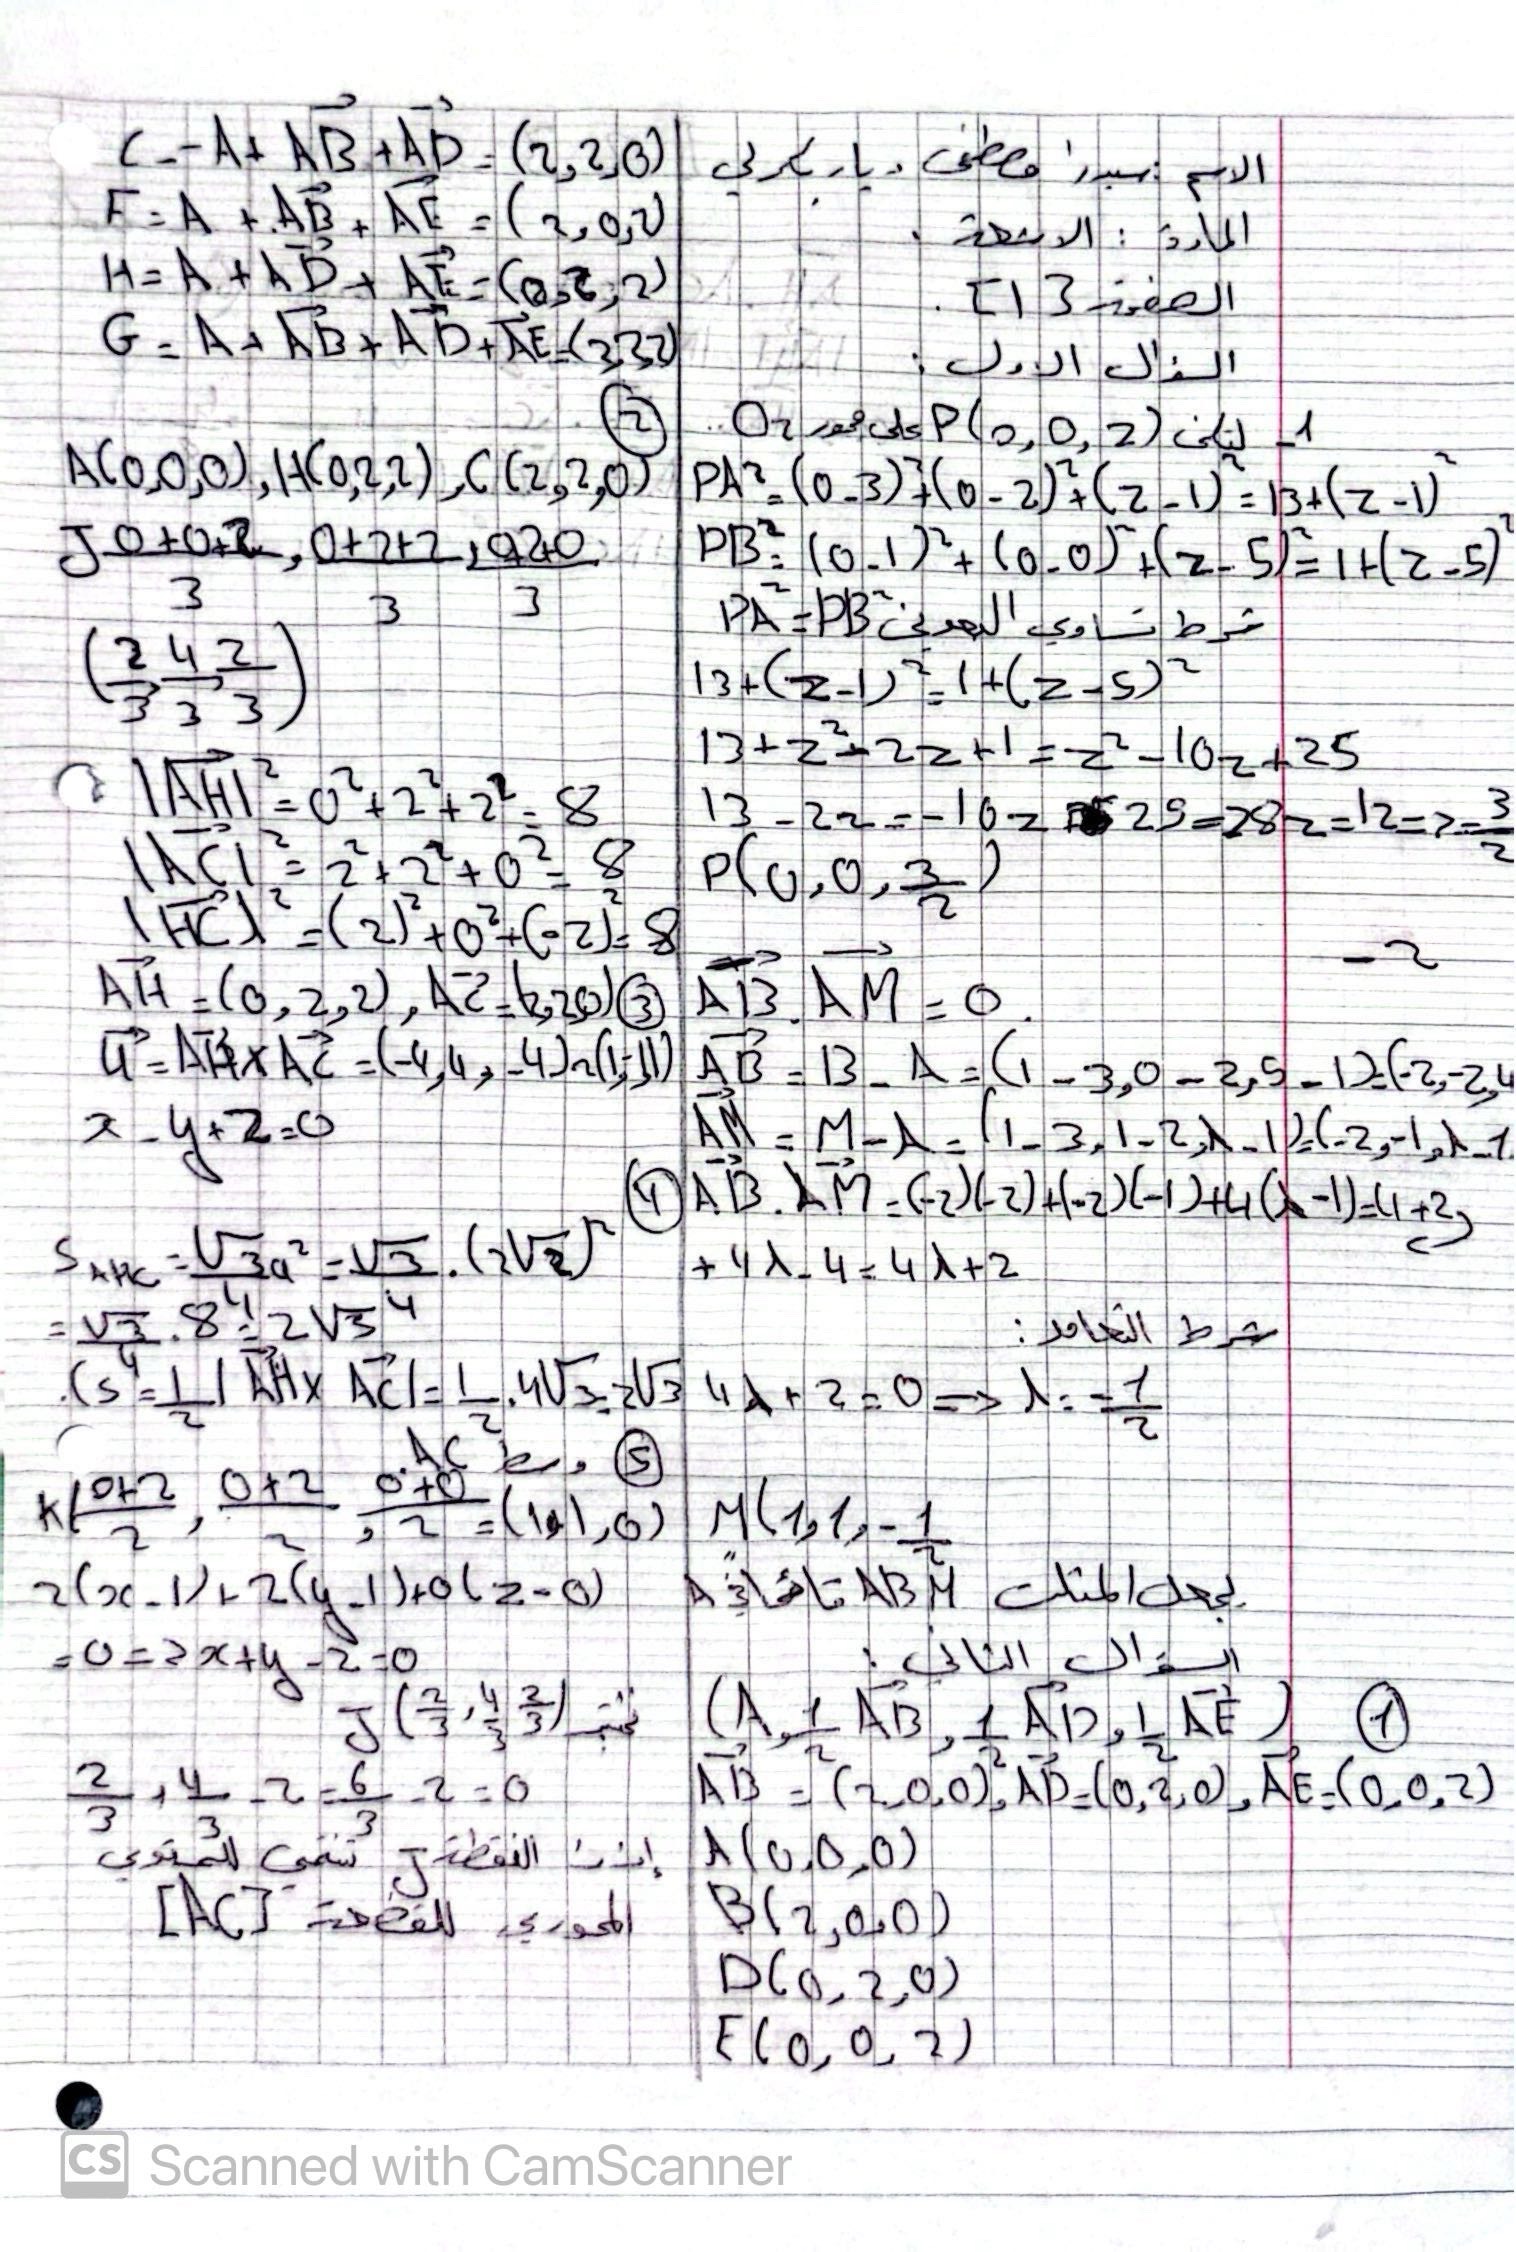 الاسم : سيدرا مصطفى ديار بكرلي
المادة : الاشعة .
الصفحة 13].
السؤال الاول :
1- ليكن P(0,0,z) على محور Oz
PA² = (0-3)²+(0-2)²+(z-1)² = 13+(z-1)²
PB² = (0-1)²+(0-0)²+(z-5)² = 1+(z-5)²
شرط تساوي البعدين PA² = PB²
13+(z-1)² = 1+(z-5)²
13+z²-2z+1 = z²-10z+25
13-2z = -10z 25 = 28z = 12 => = 3/2
P(0,0,3/2)
-2
AB.AM = 0.
AB = B-A = (1-3,0-2,5-1) = (-2,-2,4
AM = M-A = (1-3,1-2,λ-1) = (-2,-1,λ-1
AB.AM = (-2)(-2)+(-2)(-1)+4(λ-1) = 4+2
+4λ-4 = 4λ+2
شرط التعامد :
4λ+2 = 0 => λ = -1/2
M(1,1,-1/2
يجعل المثلث ABM قائماً في A
السؤال الثاني :
① (A, 1/2 AB, 1/2 AD, 1/2 AE)
AB = (2,0,0), AD = (0,2,0), AE = (0,0,2)
A(0,0,0)
B(2,0,0)
D(0,2,0)
E(0,0,2)
C = A+AB+AD = (2,2,0)
F = A+AB+AE = (2,0,2)
H = A+AD+AE = (0,2,2)
G = A+AB+AD+AE = (2,2,2)
②
A(0,0,0), H(0,2,2), C(2,2,0)
J 0+0+2/3, 0+2+2/3, 0+2+0/3
(2/3, 4/3, 2/3)
|AH|² = 0²+2²+2² = 8
|AC|² = 2²+2²+0² = 8
|HC|² = (2)²+0²+(-2)² = 8
③ AH = (0,2,2), AC = (2,2,0)
u = AH×AC = (-4,4,-4) ~ (1,-1,1)
x-y+z=0
④
S AHC = √3/4 a² = √3/4 . (2√2)²
= √3/4 . 8 = 2√3
.(S = 1/2 |AH×AC| = 1/2 . 4√3 = 2√3
⑤ وسط AC.
K(0+2/2, 0+2/2, 0+0/2 = (1,1,0)
2(x-1)+2(y-1)+0(z-0)
= 0 => x+y-2=0
نختبر J(2/3, 4/3, 2/3)
2/3 + 4/3 - 2 = 6/3 - 2 = 0
إذن النقطة J تنتمي للمستوي
المحوري للقطعة [AC]
CS Scanned with CamScanner